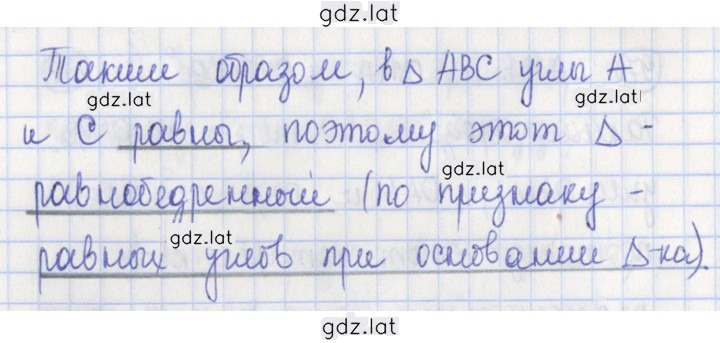 gdz.lat
Таким образом, в △ ABC углы A
gdz.lat gdz.lat
и C равны, поэтому этот △-
gdz.lat
равнобедренный (по признаку -
gdz.lat
равных углов при основании △-ка).
gdz.lat